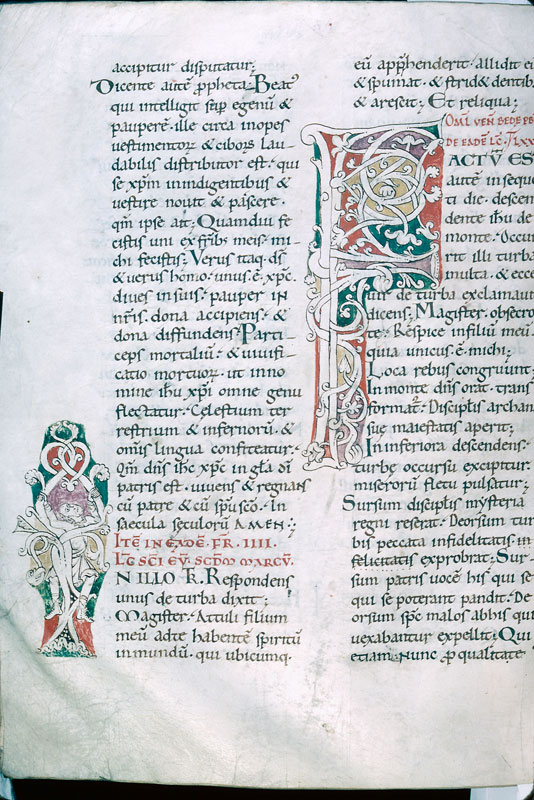 accipitur disputatur;
Dicente autē ꝓpheta. Beat᾽
qui intelligit sup egenū &
pauperē. ille circa inopes
uestimentoꝝ & ciboꝝ lau-
dabilis distributor est. qui
se xp̄m in indigentibus &
uestire nouit & pascere.
qm̄ ipse ait; Quamdiu fe
cistis uni ex frīb; meis. mi-
chi fecistis; Verus itaq. d̄s
& uerus homo. unus. ē. xp̄c.
diues in suis. pauper IN
nr̄is. dona accipiens. &
dona diffundens. Parti-
ceps mortaliū. & uiuifi-
catio mortuoꝝ. ut in no
mine ihū xp̄i omne genu
flectatur. Celestium ter
restrium & infernorū. &
omīs lingua confiteatur.
Qm̄ dn̄s ihc xp̄c in gl̄a dī
patris est. uiuens & regnans
cū patre & cū sp̄u sco. In
saecula seculorū AMEN.;
ITĒ IN EADĒ. FR. IIII.
LC̄ SC̄I EV̄. SC̄DM̄ MARCV̄.
N ILLO T̄R. Respondens
unus de turba dixit;
Magister. Attuli filium
meū ad te habentē spiritū
inmundū. qui ubicumq.
eū app̄henderit. allidit eū
& spumat. & strid& dentib
& arescit; Et reliqua;
OML̄ VEN̄ BEDE PB
DE EADĒ LC̄
FACTV̄ ES
autē in sequē
ti die. descen
dente ihū de
monte. Occur
rit illi turba
multa. & ecce
uir de turba exclamauit
dicens; Magister. obsecro
te. Respice in filiū meū.
quia unicus. ē. michi;
Loca rebus congruunt;
In monte dn̄s orat. trans
format᾽. Discipl̄is archan
sue maiestatis aperit;
In inferiora descendens.
turbe occursu excipitur.
miseroru̅ fletu pulsatur;
Sursum discipl̄is mysteria
regni reserat. Deorsum tur
bis peccata infidelitatis in
felicitatis exprobrat; Sur-
sum patris uocē his qui se
qui se poterant pandit. De
orsum spc̄ malos ab his qui
uexabantur expellit; Qui
etiam. Nunc ꝓ qualitate